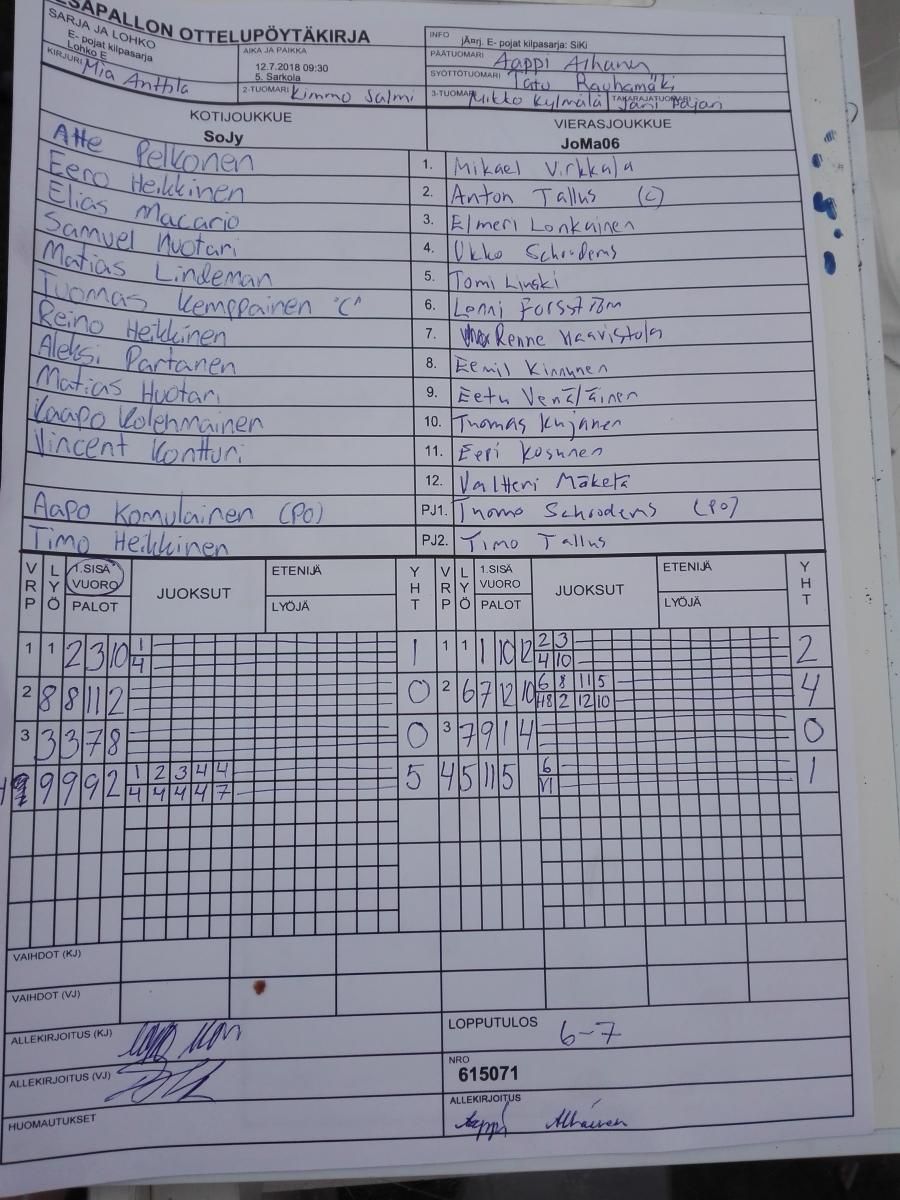 ESÄPALLON OTTELUPÖYTÄKIRJA
SARJA JA LOHKO
E- pojat kilpasarja
Lohko E
AIKA JA PAIKKA
12.7.2018 09:30
5. Sarkola
INFO jÄ¤rj. E- pojat kilpasarja: SiKi
PÄÄTUOMARI Aappi
SYÖTTÖTUOMARI Tatu Rauhamäki
KIRJURI Mia Anttila
2-TUOMARI Kimmo Salmi
3-TUOMARI Mikko Kylmälä TAKARAJATUOMARI Jani
KOTIJOUKKUE
SoJy
VIERASJOUKKUE
JoMa06
Atte Pelkonen 1. Mikael Virkkala
Eero Heikkinen 2. Anton Tallus (C)
Elias Macario 3. Elmeri Lonkainen
Samuel Huotari 4. Ukko Schroderus
Matias Lindeman 5. Tomi Linski
Tuomas Kemppainen "C" 6. Lenni Forsström
Reino Heikkinen 7. Renne Haavistola
Aleksi Partanen 8. Eemil Kinnunen
Matias Huotari 9. Eetu Venäläinen
Kaapo Kolehmainen 10. Tuomas Kujanen
Vincent Kontturi 11. Eeri Kosunen
12. Valtteri Mäkelä
Aapo Komulainen (PO) PJ1. Tuomo Schroderus (PO)
Timo Heikkinen PJ2. Timo Tallus
VRP LYÖ 1.SISÄ VUORO PALOT JUOKSUT ETENIJÄ LYÖJÄ YHT VRP LYÖ 1.SISÄ VUORO PALOT JUOKSUT ETENIJÄ LYÖJÄ YHT
1 1 2 3 10 1 1 1 1 1 10 12 2 3 2
4 4 10
2 8 8 11 2 0 2 6 7 12 10 6 8 11 5 4
H8 2 12 10
3 3 3 7 8 0 3 7 9 1 4 0
4 9 9 9 2 1 2 3 4 4 5 4 5 11 5 6 1
4 4 4 4 7 VI
VAIHDOT (KJ)
VAIHDOT (VJ)
ALLEKIRJOITUS (KJ)
LOPPUTULOS 6-7
ALLEKIRJOITUS (VJ)
NRO
615071
HUOMAUTUKSET
ALLEKIRJOITUS
Aappi